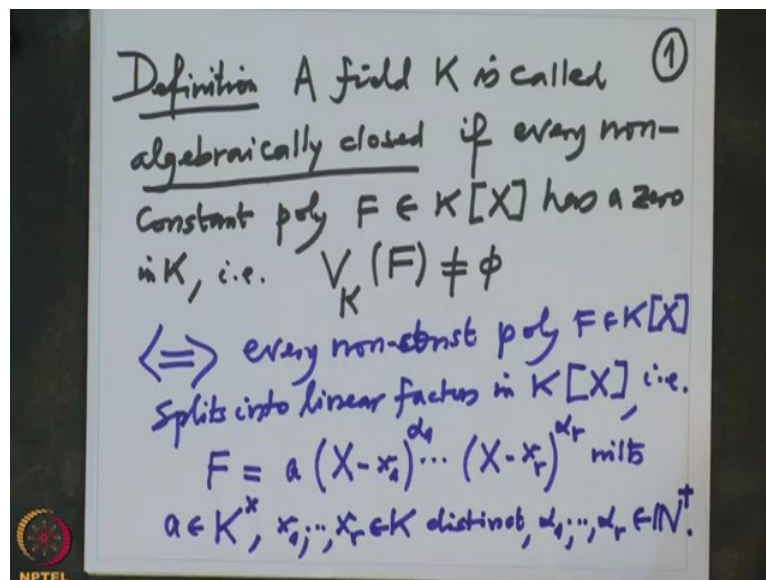 Definition A field K is called ①
algebraically closed if every non-
constant poly F ∈ K[X] has a zero
in K, i.e. V_K(F) ≠ ϕ
⟺ every non-const poly F∈K[X]
splits into linear factors in K[X], i.e.
F = a (X-x₁)^α₁ ⋯ (X-x_r)^α_r with
a∈K^×, x₁,⋯,x_r∈K distinct, α₁,⋯,α_r∈ℕ⁺.
NPTEL